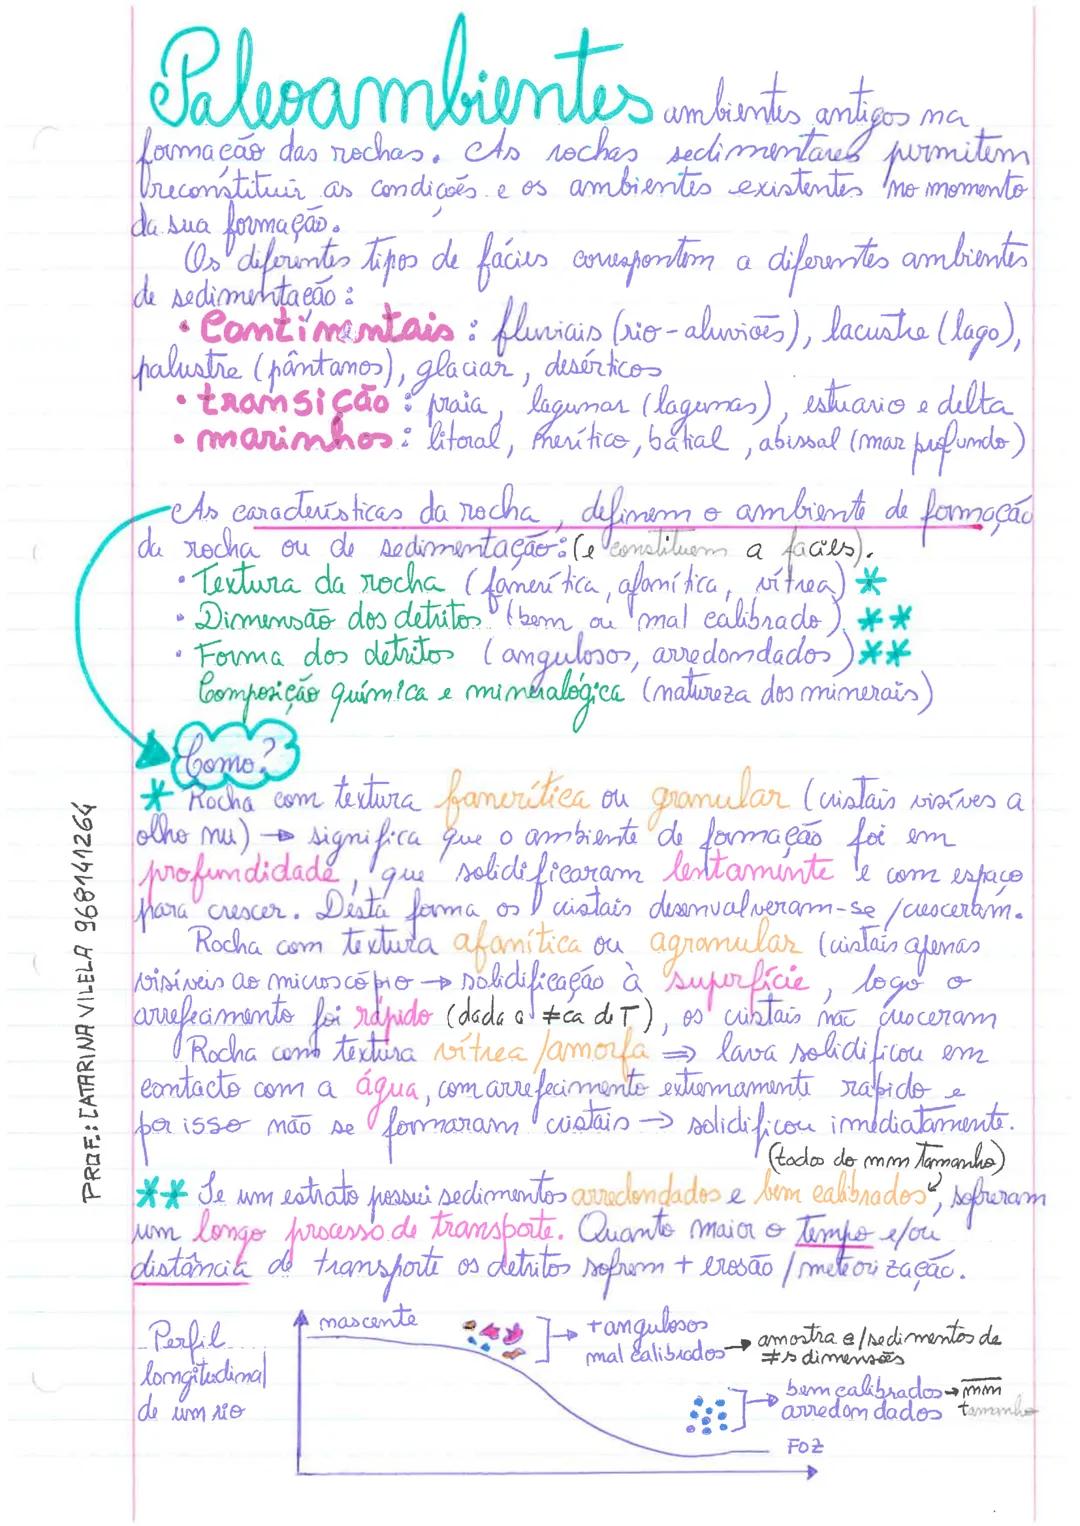 Paleoambientes ambientes antigos na
formação das rochas. As rochas sedimentares permitem
reconstituir as condições e os ambientes existentes no momento
da sua formação.
Os diferentes tipos de fácies correspontem a diferentes ambientes
de sedimentação:
• Continentais: fluviais (rio-aluviões), lacustre (lago),
palustre (pântanos), glaciar, desérticos
• transição: praia, lagunar (lagunas), estuario e delta
• marinhos: litoral, nerítico, batial, abissal (mar profundo)
As características da rocha, definem o ambiente de formação
da rocha ou de sedimentação: (e constituem a facies).
• Textura da rocha (fanerítica, afanítica, vítrea) *
• Dimensão dos detritos (bem ou mal calibrado) **
• Forma dos detritos (angulosos, arredondados) **
Composição química e mineralógica (natureza dos minerais)
Como?
* Rocha com textura fanerítica ou granular (cristais visíves a
olho nu) → significa que o ambiente de formação foi em
profundidade, que solidificaram lentamente e com espaço
para crescer. Desta forma os cristais desenvolveram-se/cresceram.
Rocha com textura afanítica ou agranular (cristais apenas
visíveis ao microscópio → solidificação à superfície, logo o
arrefecimento foi rápido (dada a ≠ça de T), os cristais não cresceram
Rocha com textura vítrea/amorfa ⇒ lava solidificou em
contacto com a água, com arrefecimento extremamente rápido e
por isso não se formaram cristais → solidificou imediatamente.
(todos do mm tamanho)
** Se um estrato possui sedimentos arredondados e bem calibrados, sofreram
um longo processo de transporte. Quanto maior o tempo e/ou
distância de transporte os detritos sofrem + erosão/meteorização.
Perfil
longitudinal
de um rio
nascente
+ angulosos
mal calibrados → amostra c/sedimentos de
≠s dimensões
bem calibrados → mm
arredondados tamanho
FOZ
PROF.: CATARINA VILELA 968141264